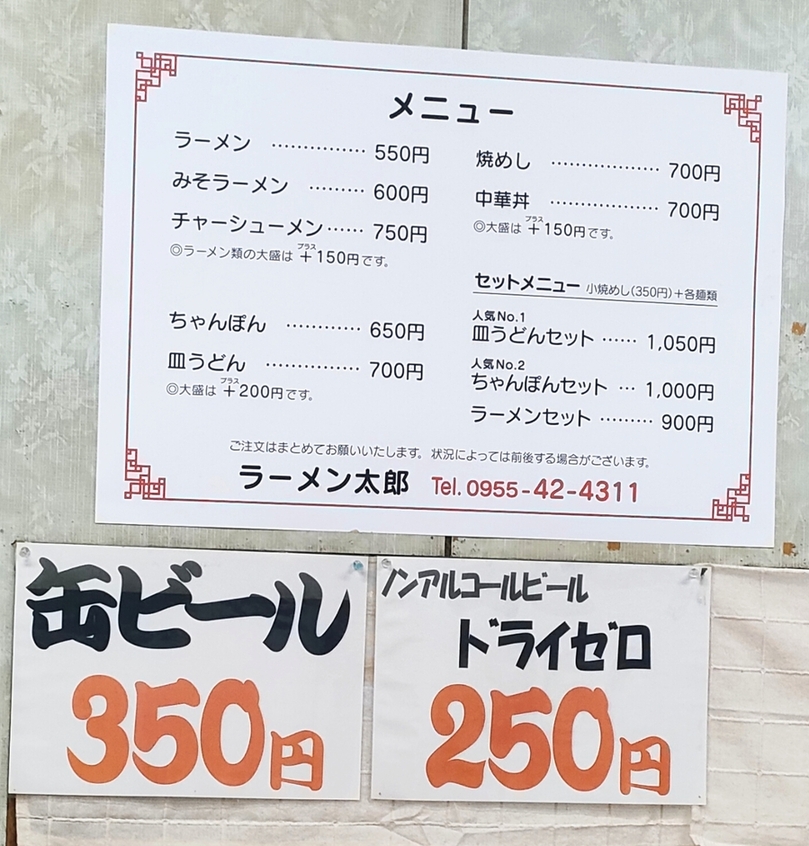 メニュー
ラーメン …………… 550円
みそラーメン ……… 600円
チャーシューメン…… 750円
◎ラーメン類の大盛は +プラス150円です。
ちゃんぽん ………… 650円
皿うどん …………… 700円
◎大盛は +プラス200円です。
焼めし ……………… 700円
中華丼 ……………… 700円
◎大盛は +プラス150円です。
セットメニュー 小焼めし(350円)+各麺類
人気No.1
皿うどんセット …… 1,050円
人気No.2
ちゃんぽんセット … 1,000円
ラーメンセット ……… 900円
ご注文はまとめてお願いいたします。状況によっては前後する場合がございます。
ラーメン太郎 Tel. 0955-42-4311
缶ビール
350円
ノンアルコールビール
ドライゼロ
250円